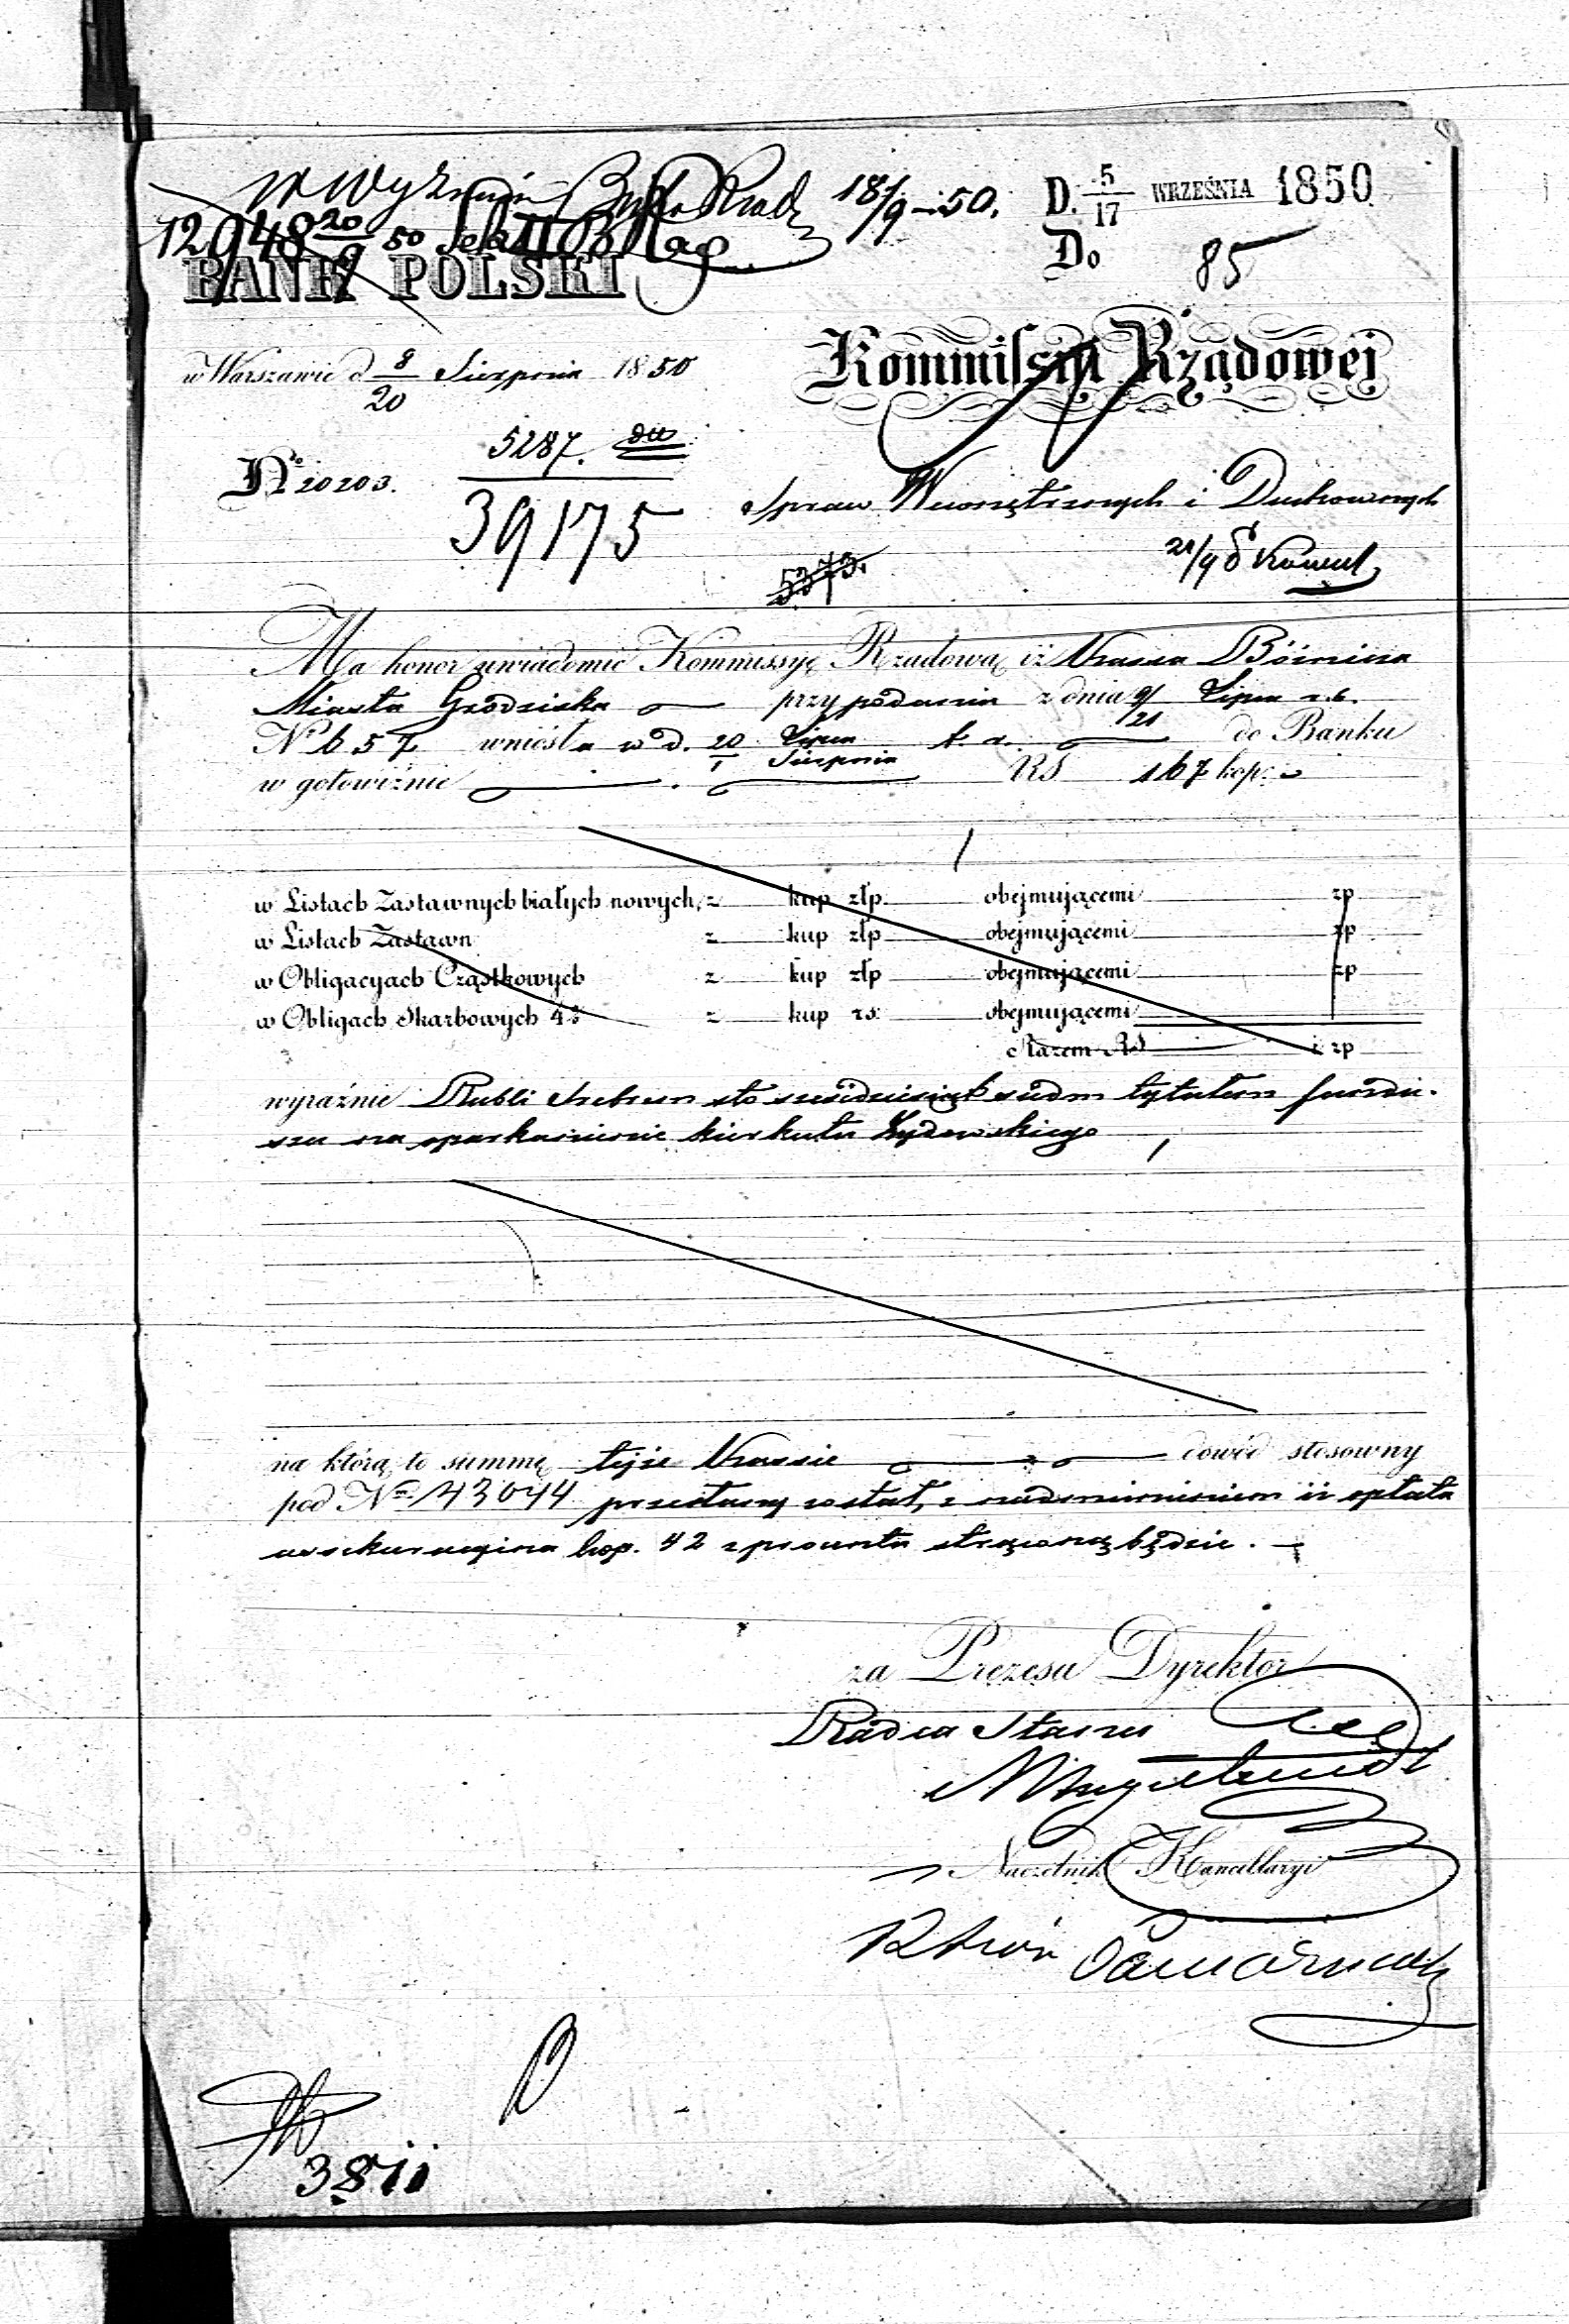 18/9 – 50. D. 5/17 WRZEŚNIA 1850
12948 20/9 50
Do 85
BANK POLSKI
Kommissyi Rządowej
w Warszawie d 8/20 Sierpnia 1850
5287.
No 20203.
39175
Spraw Wewnętrznych i Duchownych
5373.
21/9
Ma honor uwiadomić Kommissyę Rządową iż Kassa Bóżnicza
Miasta Grodziska przy podaniu z dnia 9/21 Lipca r.b.
No 657 wniosła w d. 20 Lipca / 1 Sierpnia t. r. do Banku
w gotowiźnie RS 167 kop:
w Listach Zastawnych białych nowych, z kup złp. obejmującemi zp
w Listach Zastawn z kup złp obejmującemi zp
w Obligacyach Cząstkowych z kup złp obejmującemi zp
w Obligach Skarbowych 4% z kup rs: obejmującemi
Razem RS i zp
wyraźnie Rubli srebrem sto sześćdziesiąt siedm tytułem fundu-
szu na oparkanienie kierkutu Żydowskiego
na którą to summę tejże Kassie dowód stosowny
pod No 43044 przesłany został, z nadmienieniem iż opłata
assekuracyjna kop. 42 z procentu strąconą będzie.
za Prezesa Dyrektor
Radca Stanu
Naczelnik Kancellaryi
3811